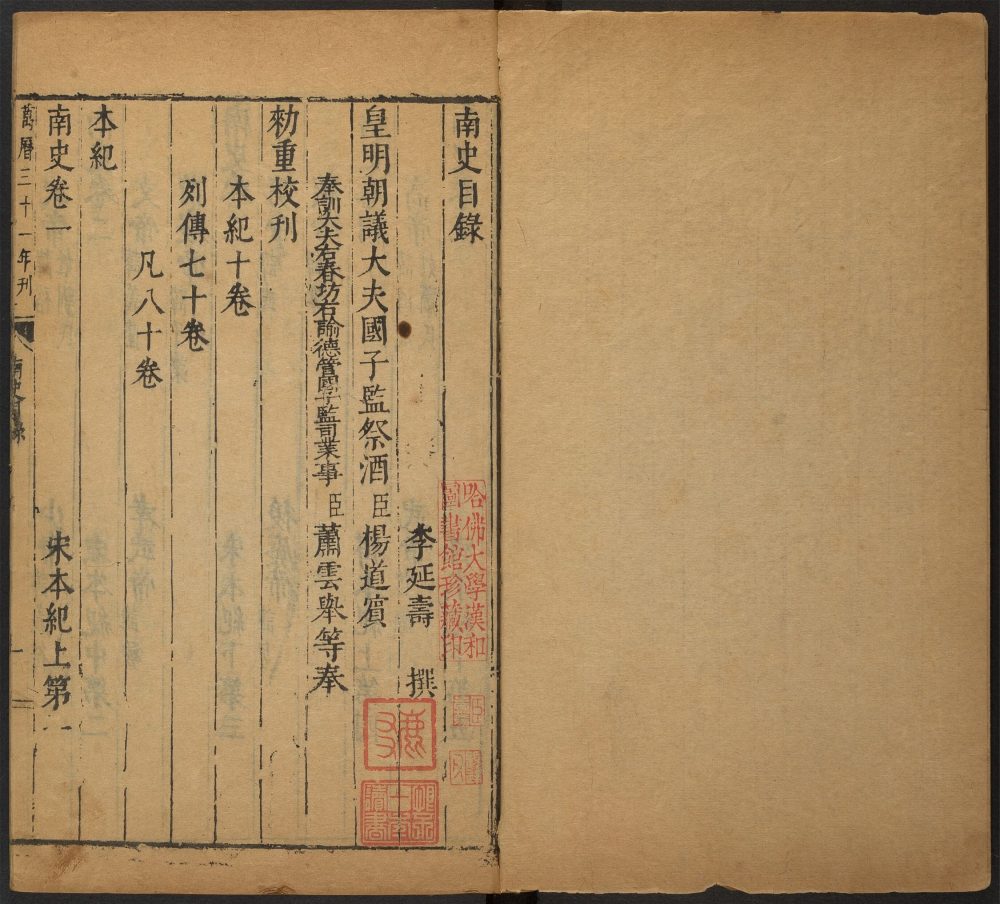 南史目錄
李延壽 撰
皇明朝議大夫國子監祭酒臣楊道賔
奉訓大夫右春坊右諭德管國子監司業事臣蕭雲舉等奉
勑重校刋
本紀十卷
列傳七十卷
凡八十卷
本紀
南史卷一 宋本紀上第一
萬曆三十一年刋
南史目錄
一
哈佛大學漢和
圖書館珍藏印